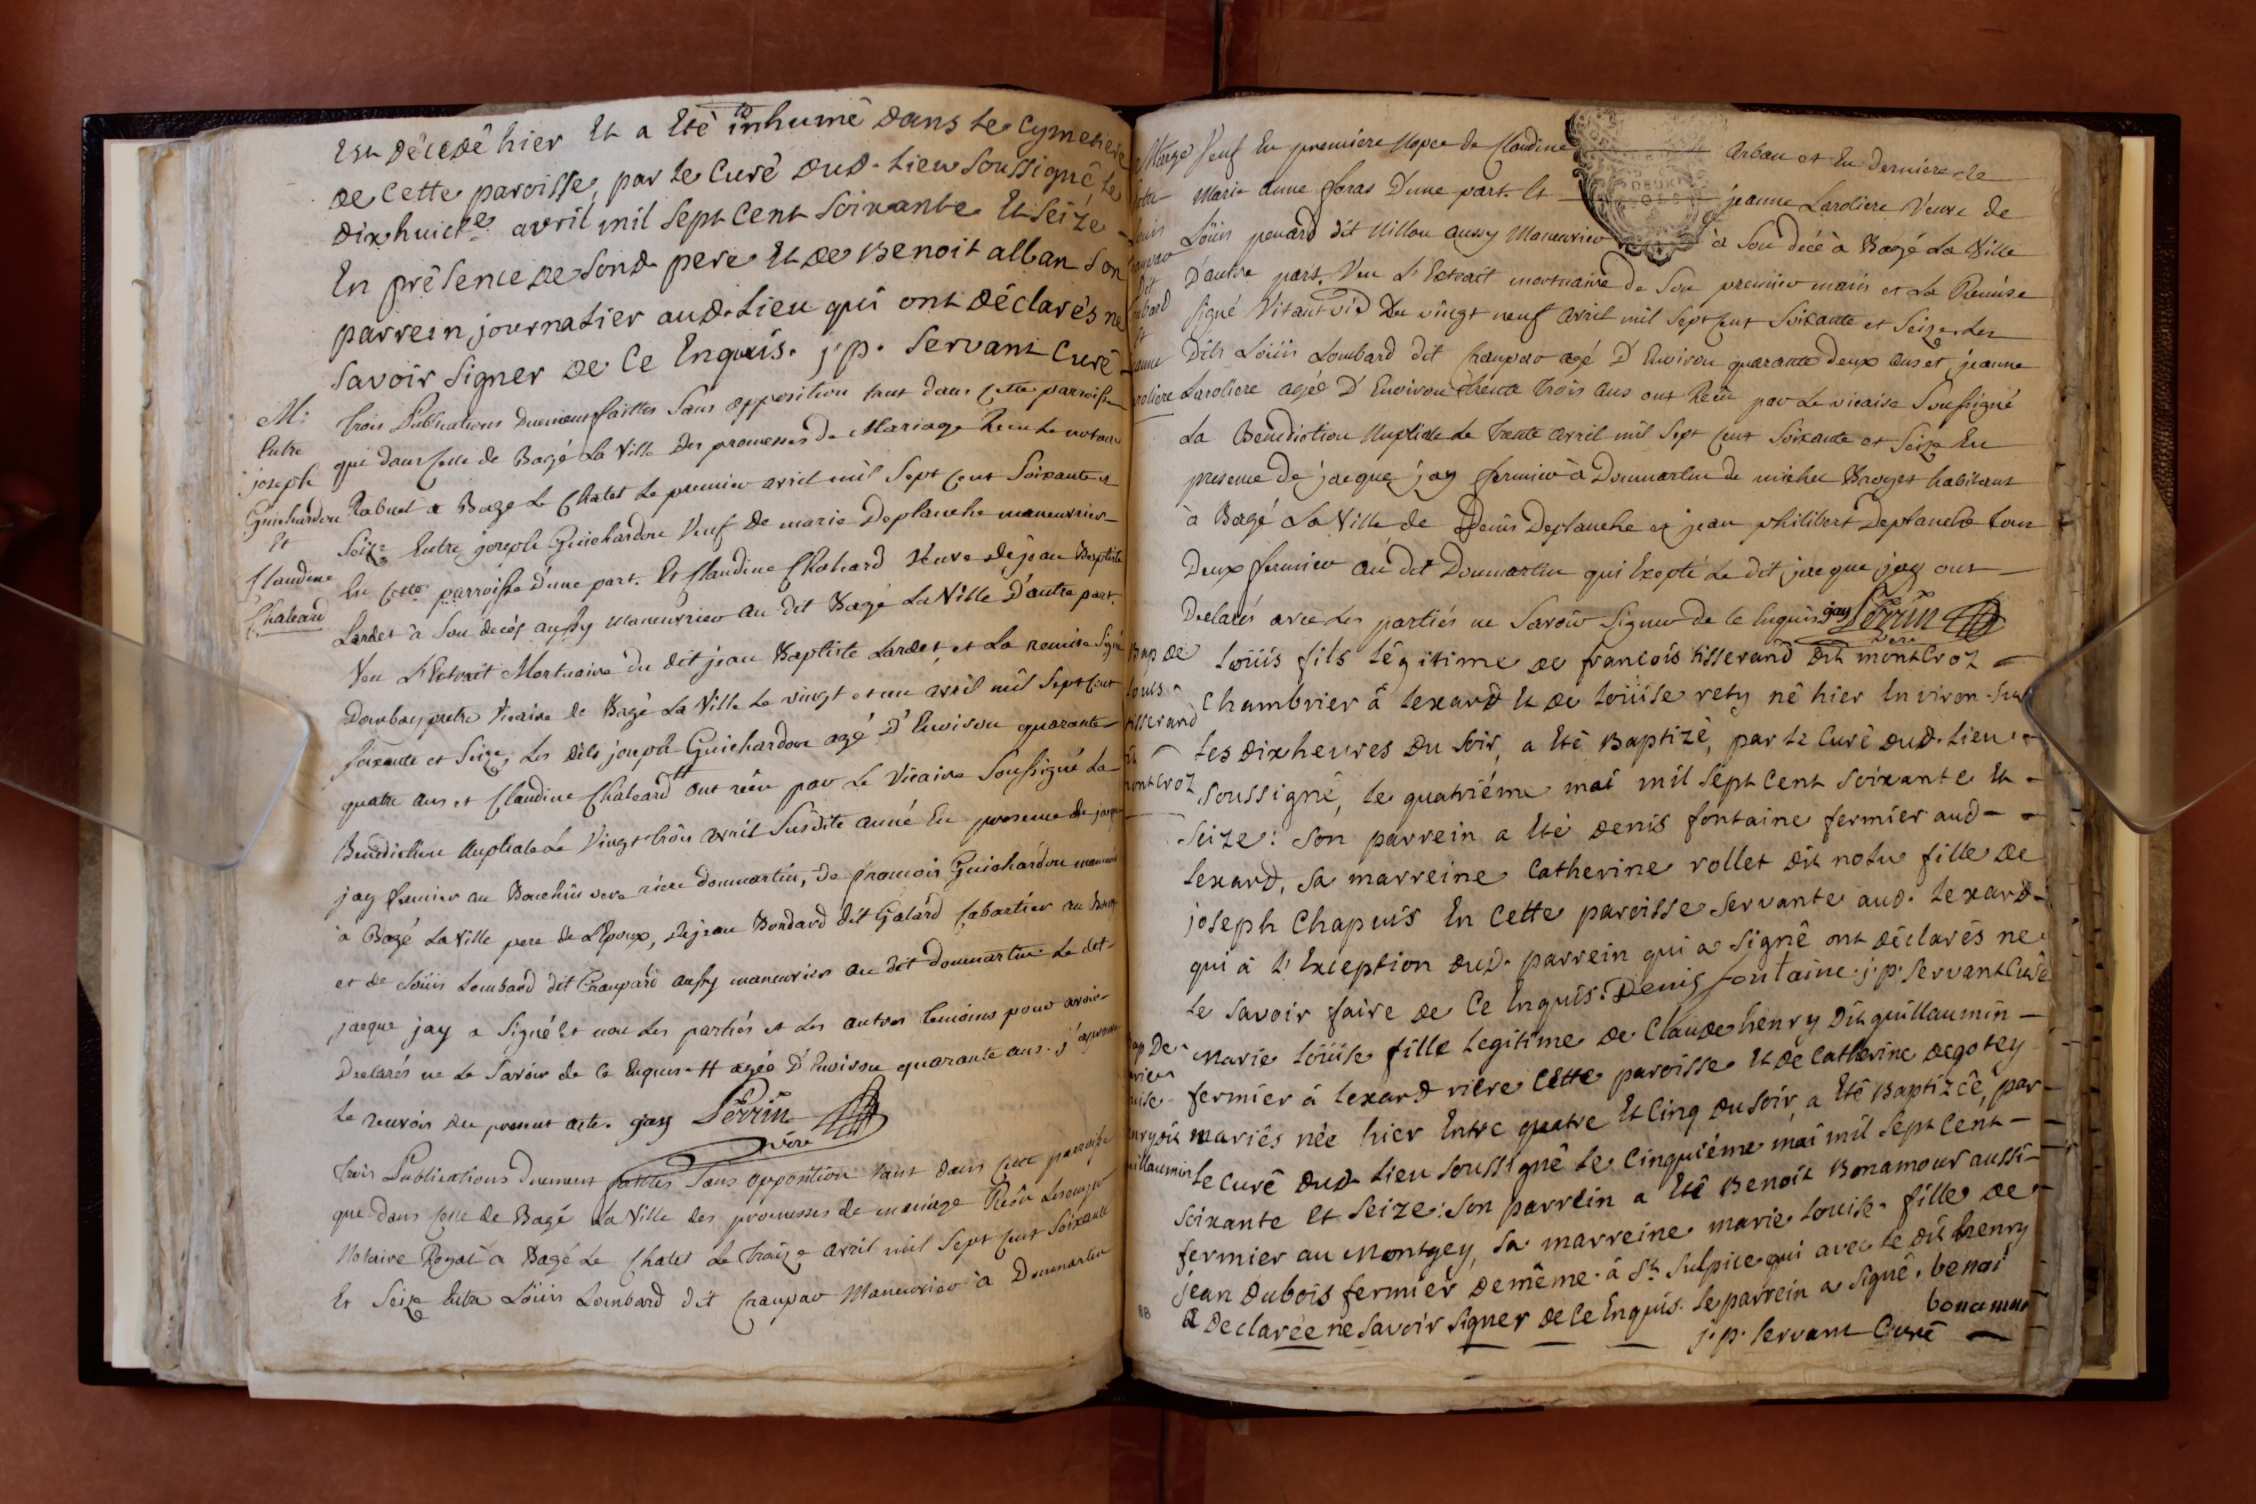 Est décedé hier Et a Eté inhumé dans le Cymetiere
de Cette paroisse, par le Curé dud. lieu soussigné, le
dixhuict.e avril mil sept Cent soixante Et seize
En présence de sond. pere Et de Benoit alban son
parrein journalier aud. lieu qui ont déclarés ne
savoir signer de Ce Enquis. j. p. servant Curé
M:
Entre
joseph
Guichardon
Et
Claudine
Chaleard
trois Publications duement faittes sans opposition tant dans cette parroisse
que dans celle de Bagé la Ville des promesses de Mariage Recu le notaire
Rabuel a Bagé Le Chatel le premier avril mil sept cent soixante et
seize Entre joseph Guichardon Veuf de marie Deplanche maneuvrier
En cette parroisse d'une part. Et Claudine Chaleard Veuve de jean Baptiste
Lardet à son decés aussy maneuvrier au dit Bagé la Ville D'autre part.
Veu L'Extrait Mortuaire du dit jean Baptiste Lardet et La remise signé
Dombey pretre Vicaire de Bagé La Ville le vingt et un avril mil sept cent
soixante et seize, Les dits joseph Guichardon agé D'Environ quarante
quatre ans et Claudine Chaleard # ont reçu par Le Vicaire soussigné La
Benediction Nuptiale Le Vingt trois avril susdite anné En presence de jacque
jay fermier au Bouchin vers riere dommartin, de francois Guichardon maneuv
à Bagé la Ville pere de L'Epoux, de jean Bondard dit Galard Cabartier au Bourg
et de Loüis Lombard dit Craupard aussy maneuvrier au dit dommartin Le dit
jacque jay a signé Et non Les partiés et Les autres temoins pour avoir
Declarés ne Le Savoir de Ce Enquis # agée D'Environ quarante ans. j'aprouve
le renvoir du present acte. jay Perrin
vic.re
trois Publications duement faittes sans opposition tant dans cette parroisse
que dans celle de Bagé La Ville des promesses de mariage Recû
Notaire Royal a Bagé Le Chatel Le traize avril mil sept cent soixante
Et Seize Entre Loüis Lombard dit Craupar Maneuvrier à Dommartin
Mariage
Entre
Louis
Craupar
dit
Lombard
Et
jeanne
Laroliere
Veuf En premiere Nopce de Claudine Arban et En derniere de
Marie Anne foras D'une part. Et jeanne Laroliere Veuve de
Loüis penard dit Nillon aussy Maneuvrier à son decé à Bagé La Ville
D'autre part. Veu L'Extrait mortuaire de Son premier maris et La Remise
signé Vitant vic. Du vingt neuf Avril mil sept cent soixante et seize Les
Dits Loüis Lombard dit Craupar agé D'Environ quarante deux ans et jeanne
Laroliere agée D'Environ trente trois ans ont Reçu par Le vicaire soussigné
La Benediction Nuptiale Le trente avril mil sept cent soixante et seize En
presence de jacque jay fermier à Dommartin de michel Broyer habitant
à Bagé La Ville de Denis Deplanche et jean philibert Deplanche tous
Deux fermier au dit Dommartin qui Excepté Le dit jacque jay ont
Declarés avec Les partiés ne Savoir Signer de Ce Enquis jay Perrin
vic.re
Bap de
Louis
tisserand
dit
montcroz
Loüis fils légitime de françois tisserand dit montcroz
Chambrier à lexard Et de loüise rety né hier Environ sur
les dix heures du soir, a Eté Baptizé, par le Curé dud. lieu
soussigné, le quatriéme mai mil sept Cent soixante Et
seize: son parrein a Eté denis fontaine fermier aud
lexard, sa marreine Catherine rollet dit nolu fille de
joseph Chapuis En Cette paroisse servante aud. lexard
qui à l'Exception dud. parrein qui a signé ont déclarés ne
le savoir faire de Ce Enquis. Denis fontaine. j. p. servant Curé
Bap De
marie
louise
henry dit
guillaumin
Marie loüise fille legitime de Claude henry dit guillaumin
fermier à lexard riére Cette paroisse Et de Catherine degotey
mariés née hier Entre quatre Et Cinq du soir, a Eté Baptizée, par
le Curé dud. lieu soussigné le Cinquiéme mai mil sept Cent
soixante Et seize: son parrein a Eté Benoit Bonamour aussi
fermier au Montgey, sa marreine marie louise fille de
jean dubois fermier de même à St. sulpice qui avec le dit henry
a declarée ne savoir signer de Ce Enquis. le parrein a signé. benoi
bonamour
j. p. servant Curé
88